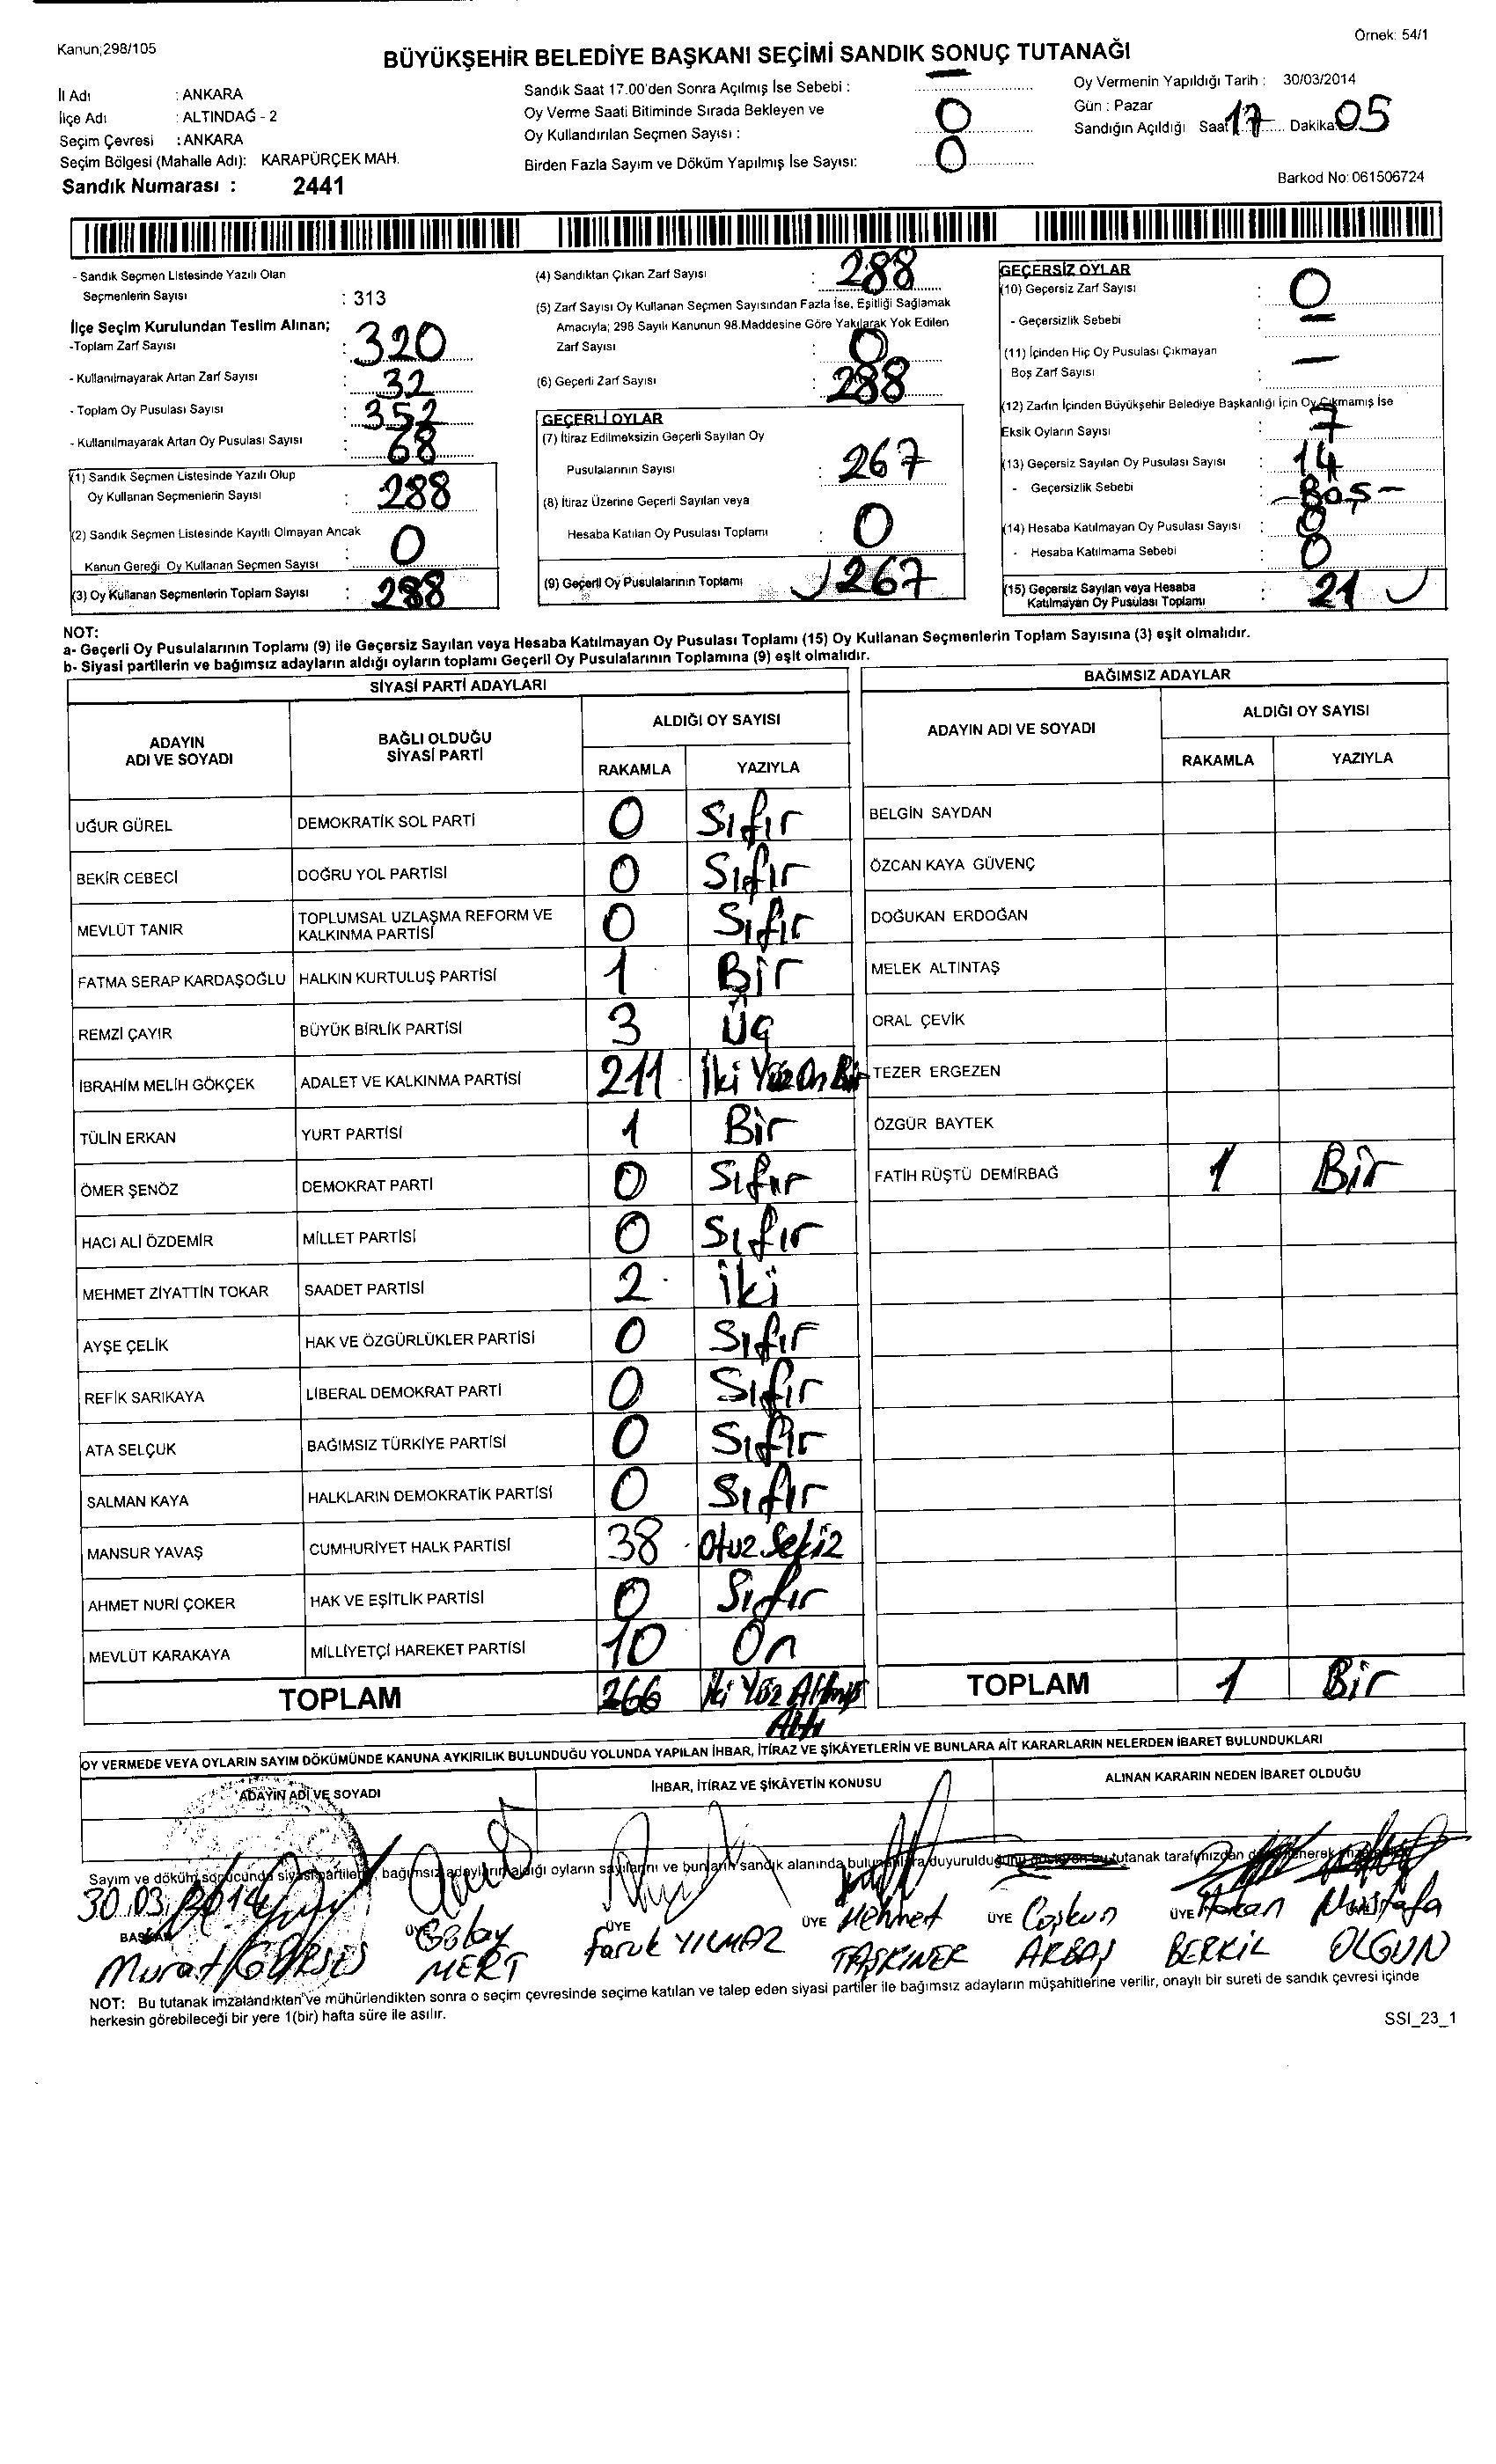 Kanun;298/105
Örnek: 54/1
BÜYÜKŞEHİR BELEDİYE BAŞKANI SEÇİMİ SANDIK SONUÇ TUTANAĞI
İl Adı : ANKARA
İlçe Adı : ALTINDAĞ - 2
Seçim Çevresi : ANKARA
Seçim Bölgesi (Mahalle Adı): KARAPÜRÇEK MAH.
Sandık Numarası : 2441
Sandık Saat 17.00'den Sonra Açılmış İse Sebebi : —
Oy Verme Saati Bitiminde Sırada Bekleyen ve
Oy Kullandırılan Seçmen Sayısı : 0
Birden Fazla Sayım ve Döküm Yapılmış İse Sayısı: 0
Oy Vermenin Yapıldığı Tarih : 30/03/2014
Gün : Pazar
Sandığın Açıldığı Saat 17 Dakika: 05
Barkod No: 061506724
- Sandık Seçmen Listesinde Yazılı Olan
Seçmenlerin Sayısı : 313
İlçe Seçim Kurulundan Teslim Alınan;
-Toplam Zarf Sayısı : 320
- Kullanılmayarak Artan Zarf Sayısı : 32
- Toplam Oy Pusulası Sayısı : 352
- Kullanılmayarak Artan Oy Pusulası Sayısı : 68
(1) Sandık Seçmen Listesinde Yazılı Olup
Oy Kullanan Seçmenlerin Sayısı : 288
(2) Sandık Seçmen Listesinde Kayıtlı Olmayan Ancak
Kanun Gereği Oy Kullanan Seçmen Sayısı : 0
(3) Oy Kullanan Seçmenlerin Toplam Sayısı : 288
(4) Sandıktan Çıkan Zarf Sayısı : 288
(5) Zarf Sayısı Oy Kullanan Seçmen Sayısından Fazla İse, Eşitliği Sağlamak
Amacıyla; 298 Sayılı Kanunun 98.Maddesine Göre Yakılarak Yok Edilen
Zarf Sayısı : 0
(6) Geçerli Zarf Sayısı : 288
GEÇERLİ OYLAR
(7) İtiraz Edilmeksizin Geçerli Sayılan Oy
Pusulalarının Sayısı : 267
(8) İtiraz Üzerine Geçerli Sayılan veya
Hesaba Katılan Oy Pusulası Toplamı : 0
(9) Geçerli Oy Pusulalarının Toplamı 267
GEÇERSİZ OYLAR
(10) Geçersiz Zarf Sayısı : 0
- Geçersizlik Sebebi : —
(11) İçinden Hiç Oy Pusulası Çıkmayan
Boş Zarf Sayısı : —
(12) Zarfın İçinden Büyükşehir Belediye Başkanlığı İçin Oy Çıkmamış İse
Eksik Oyların Sayısı : 7
(13) Geçersiz Sayılan Oy Pusulası Sayısı : 14
- Geçersizlik Sebebi : -Boş-
(14) Hesaba Katılmayan Oy Pusulası Sayısı : 0
- Hesaba Katılmama Sebebi : 0
(15) Geçersiz Sayılan veya Hesaba
Katılmayan Oy Pusulası Toplamı : 21
NOT:
a- Geçerli Oy Pusulalarının Toplamı (9) ile Geçersiz Sayılan veya Hesaba Katılmayan Oy Pusulası Toplamı (15) Oy Kullanan Seçmenlerin Toplam Sayısına (3) eşit olmalıdır.
b- Siyasi partilerin ve bağımsız adayların aldığı oyların toplamı Geçerli Oy Pusulalarının Toplamına (9) eşit olmalıdır.
SİYASİ PARTİ ADAYLARI
ADAYIN ADI VE SOYADI
BAĞLI OLDUĞU SİYASİ PARTİ
ALDIĞI OY SAYISI
RAKAMLA YAZIYLA
UĞUR GÜREL DEMOKRATİK SOL PARTİ 0 Sıfır
BEKİR CEBECİ DOĞRU YOL PARTİSİ 0 Sıfır
MEVLÜT TANIR TOPLUMSAL UZLAŞMA REFORM VE KALKINMA PARTİSİ 0 Sıfır
FATMA SERAP KARDAŞOĞLU HALKIN KURTULUŞ PARTİSİ 1 Bir
REMZİ ÇAYIR BÜYÜK BİRLİK PARTİSİ 3 Üç
İBRAHİM MELİH GÖKÇEK ADALET VE KALKINMA PARTİSİ 211 İki Yüz On Bir
TÜLİN ERKAN YURT PARTİSİ 1 Bir
ÖMER ŞENÖZ DEMOKRAT PARTİ 0 Sıfır
HACI ALİ ÖZDEMİR MİLLET PARTİSİ 0 Sıfır
MEHMET ZİYATTİN TOKAR SAADET PARTİSİ 2 İki
AYŞE ÇELİK HAK VE ÖZGÜRLÜKLER PARTİSİ 0 Sıfır
REFİK SARIKAYA LİBERAL DEMOKRAT PARTİ 0 Sıfır
ATA SELÇUK BAĞIMSIZ TÜRKİYE PARTİSİ 0 Sıfır
SALMAN KAYA HALKLARIN DEMOKRATİK PARTİSİ 0 Sıfır
MANSUR YAVAŞ CUMHURİYET HALK PARTİSİ 38 Otuz Sekiz
AHMET NURİ ÇOKER HAK VE EŞİTLİK PARTİSİ 0 Sıfır
MEVLÜT KARAKAYA MİLLİYETÇİ HAREKET PARTİSİ 10 On
TOPLAM 266 İki Yüz Altmış Altı
BAĞIMSIZ ADAYLAR
ADAYIN ADI VE SOYADI
ALDIĞI OY SAYISI
RAKAMLA YAZIYLA
BELGİN SAYDAN
ÖZCAN KAYA GÜVENÇ
DOĞUKAN ERDOĞAN
MELEK ALTINTAŞ
ORAL ÇEVİK
TEZER ERGEZEN
ÖZGÜR BAYTEK
FATİH RÜŞTÜ DEMİRBAĞ 1 Bir
TOPLAM 1 Bir
OY VERMEDE VEYA OYLARIN SAYIM DÖKÜMÜNDE KANUNA AYKIRILIK BULUNDUĞU YOLUNDA YAPILAN İHBAR, İTİRAZ VE ŞİKÂYETLERİN VE BUNLARA AİT KARARLARIN NELERDEN İBARET BULUNDUKLARI
ADAYIN ADI VE SOYADI
İHBAR, İTİRAZ VE ŞİKÂYETİN KONUSU
ALINAN KARARIN NEDEN İBARET OLDUĞU
Sayım ve döküm sonucunda siyasi partilerin, bağımsız adayların aldığı oyların sayılarını ve bunların sandık alanında bulunanlara duyurulduğunu gösteren bu tutanak tarafımızdan
30.03.2014
BAŞKAN Murat GÜRSES
ÜYE MERT
ÜYE Faruk YILMAZ
ÜYE Mehmet TAŞKINER
ÜYE Coşkun ARBAŞ
ÜYE Hakan BERKİL
Mustafa OLGUN
NOT: Bu tutanak imzalandıktan ve mühürlendikten sonra o seçim çevresinde seçime katılan ve talep eden siyasi partiler ile bağımsız adayların müşahitlerine verilir, onaylı bir sureti de sandık çevresi içinde
herkesin görebileceği bir yere 1(bir) hafta süre ile asılır.
SSI_23_1